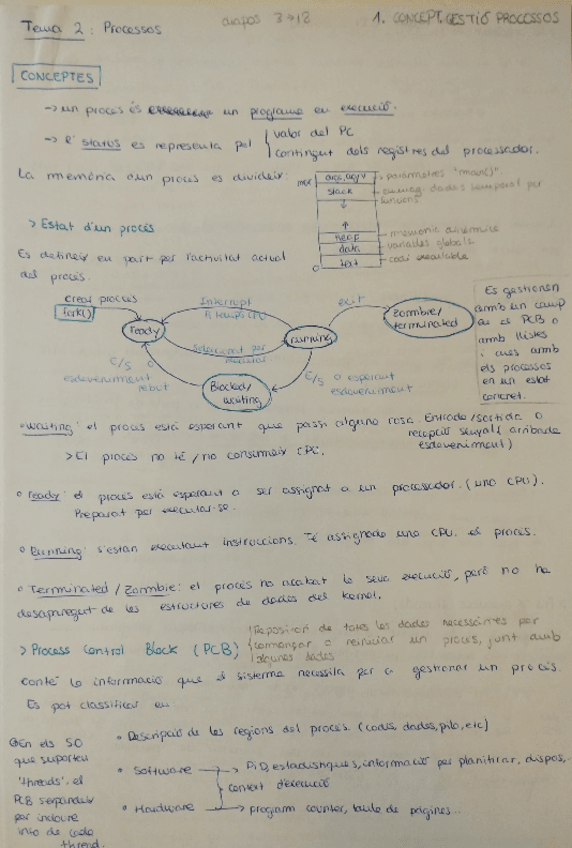 Tema 2: Processos
diapos 3→18
1. CONCEPT. GESTIÓ PROCESSOS
CONCEPTES
→ un procés és un programa en execució.
→ l'status es representa pel
valor del PC
contingut dels registres del processador.
La memòria d'un procés es divideix:
max
argc, argv
paràmetres "main()".
stack
dades temporal per
funcions
heap
memòria dinàmica
data
variables globals
text
codi executable
0
> Estat d'un procés
Es defineix en part per l'activitat actual
del procés.
creat procés
fork()
ready
Interrupt
fi temps CPU
Seleccionat per
running
exit
zombie/
terminated
E/S o
esdeveniment
rebut
Blocked/
waiting
E/S o esperant
esdeveniment
Es gestionen
amb un camp
en el PCB o
amb llistes
i cues amb
els processos
en un estat
concret.
• waiting: el procés està esperant que passi alguna cosa Entrada/sortida o
recepció senyal (arribada
esdeveniment)
> El procés no té/no consumeix CPU.
• ready: el procés està esperant a ser assignat a un processador. (una CPU).
Preparat per executar-se.
• Running: s'estan executant instruccions. Té assignada una CPU. el procés.
• Terminated / Zombie: el procés ha acabat la seva execució, però no ha
desaparegut de les estructures de dades del kernel.
> Process Control Block (PCB)
Repositori de totes les dades necessàries per
començar o reiniciar un procés, junt amb
algunes dades
conté la informació que el sistema necessita per a gestionar un procés.
Es pot classificar en:
• Descripció de les regions del procés. (codi, dades, pila, etc)
• Software → PID, estadístiques, informació per planificar, dispos,..
context d'execució
• Hardware → program counter, taula de pàgines...
En els SO
que suporten
'threads', el
PCB s'expandeix
per incloure
info de cada
thread.